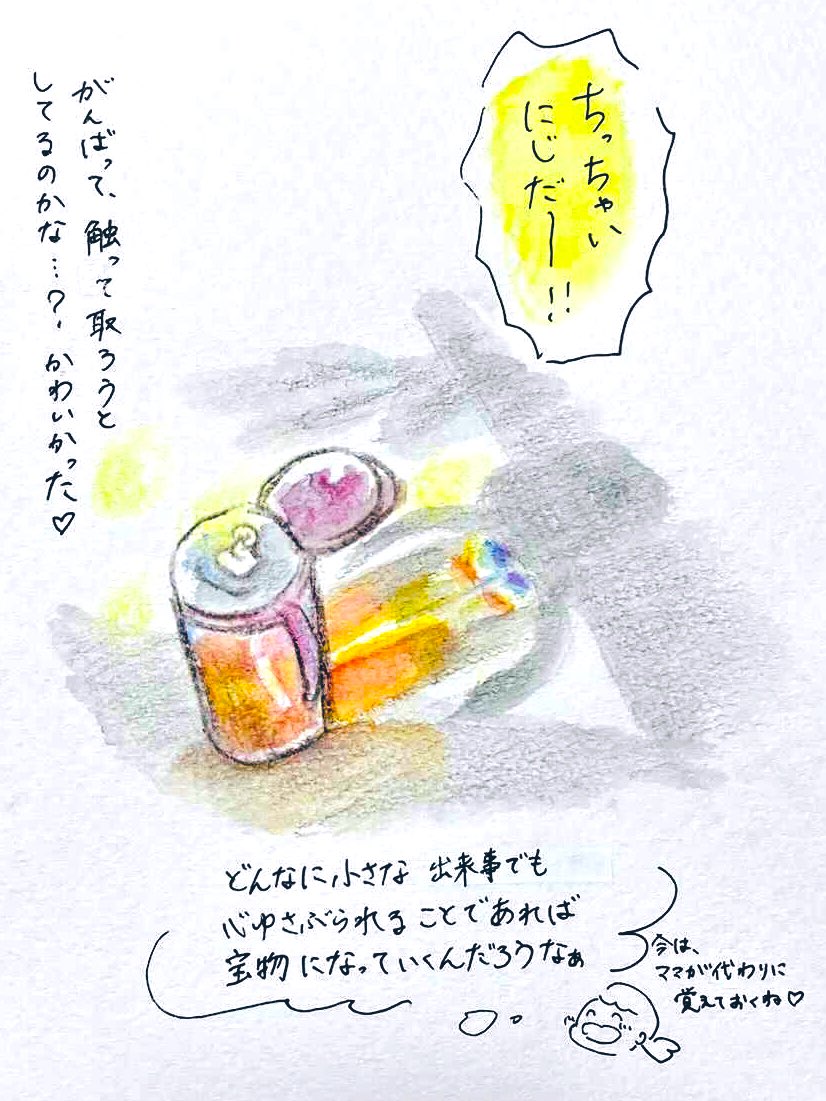 ちっちゃい
にじだー!!
がんばって、触って取ろうと
してるのかな…?、かわいかった♡
どんなに小さな 出来事でも
心ゆさぶられることであれば
宝物になっていくんだろうなぁ
今は、
ママが代わりに
覚えておくね♡